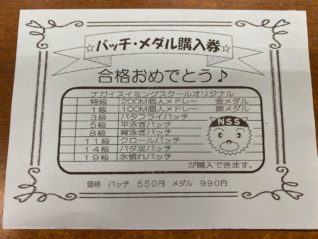 ☆バッチ・メダル購入券☆
合格おめでとう♪
ナガイスイミングスクールオリジナル
特級 200M個人メドレー 金メダル
1級 100M個人メドレー 銀メダル
3級 バタフライバッチ
5級 平泳ぎバッチ
8級 背泳ぎバッチ
11級 クロールバッチ
14級 バタ足バッチ
19級 水慣れバッチ
NSS
が購入できます。
価格 バッチ 550円 メダル 990円